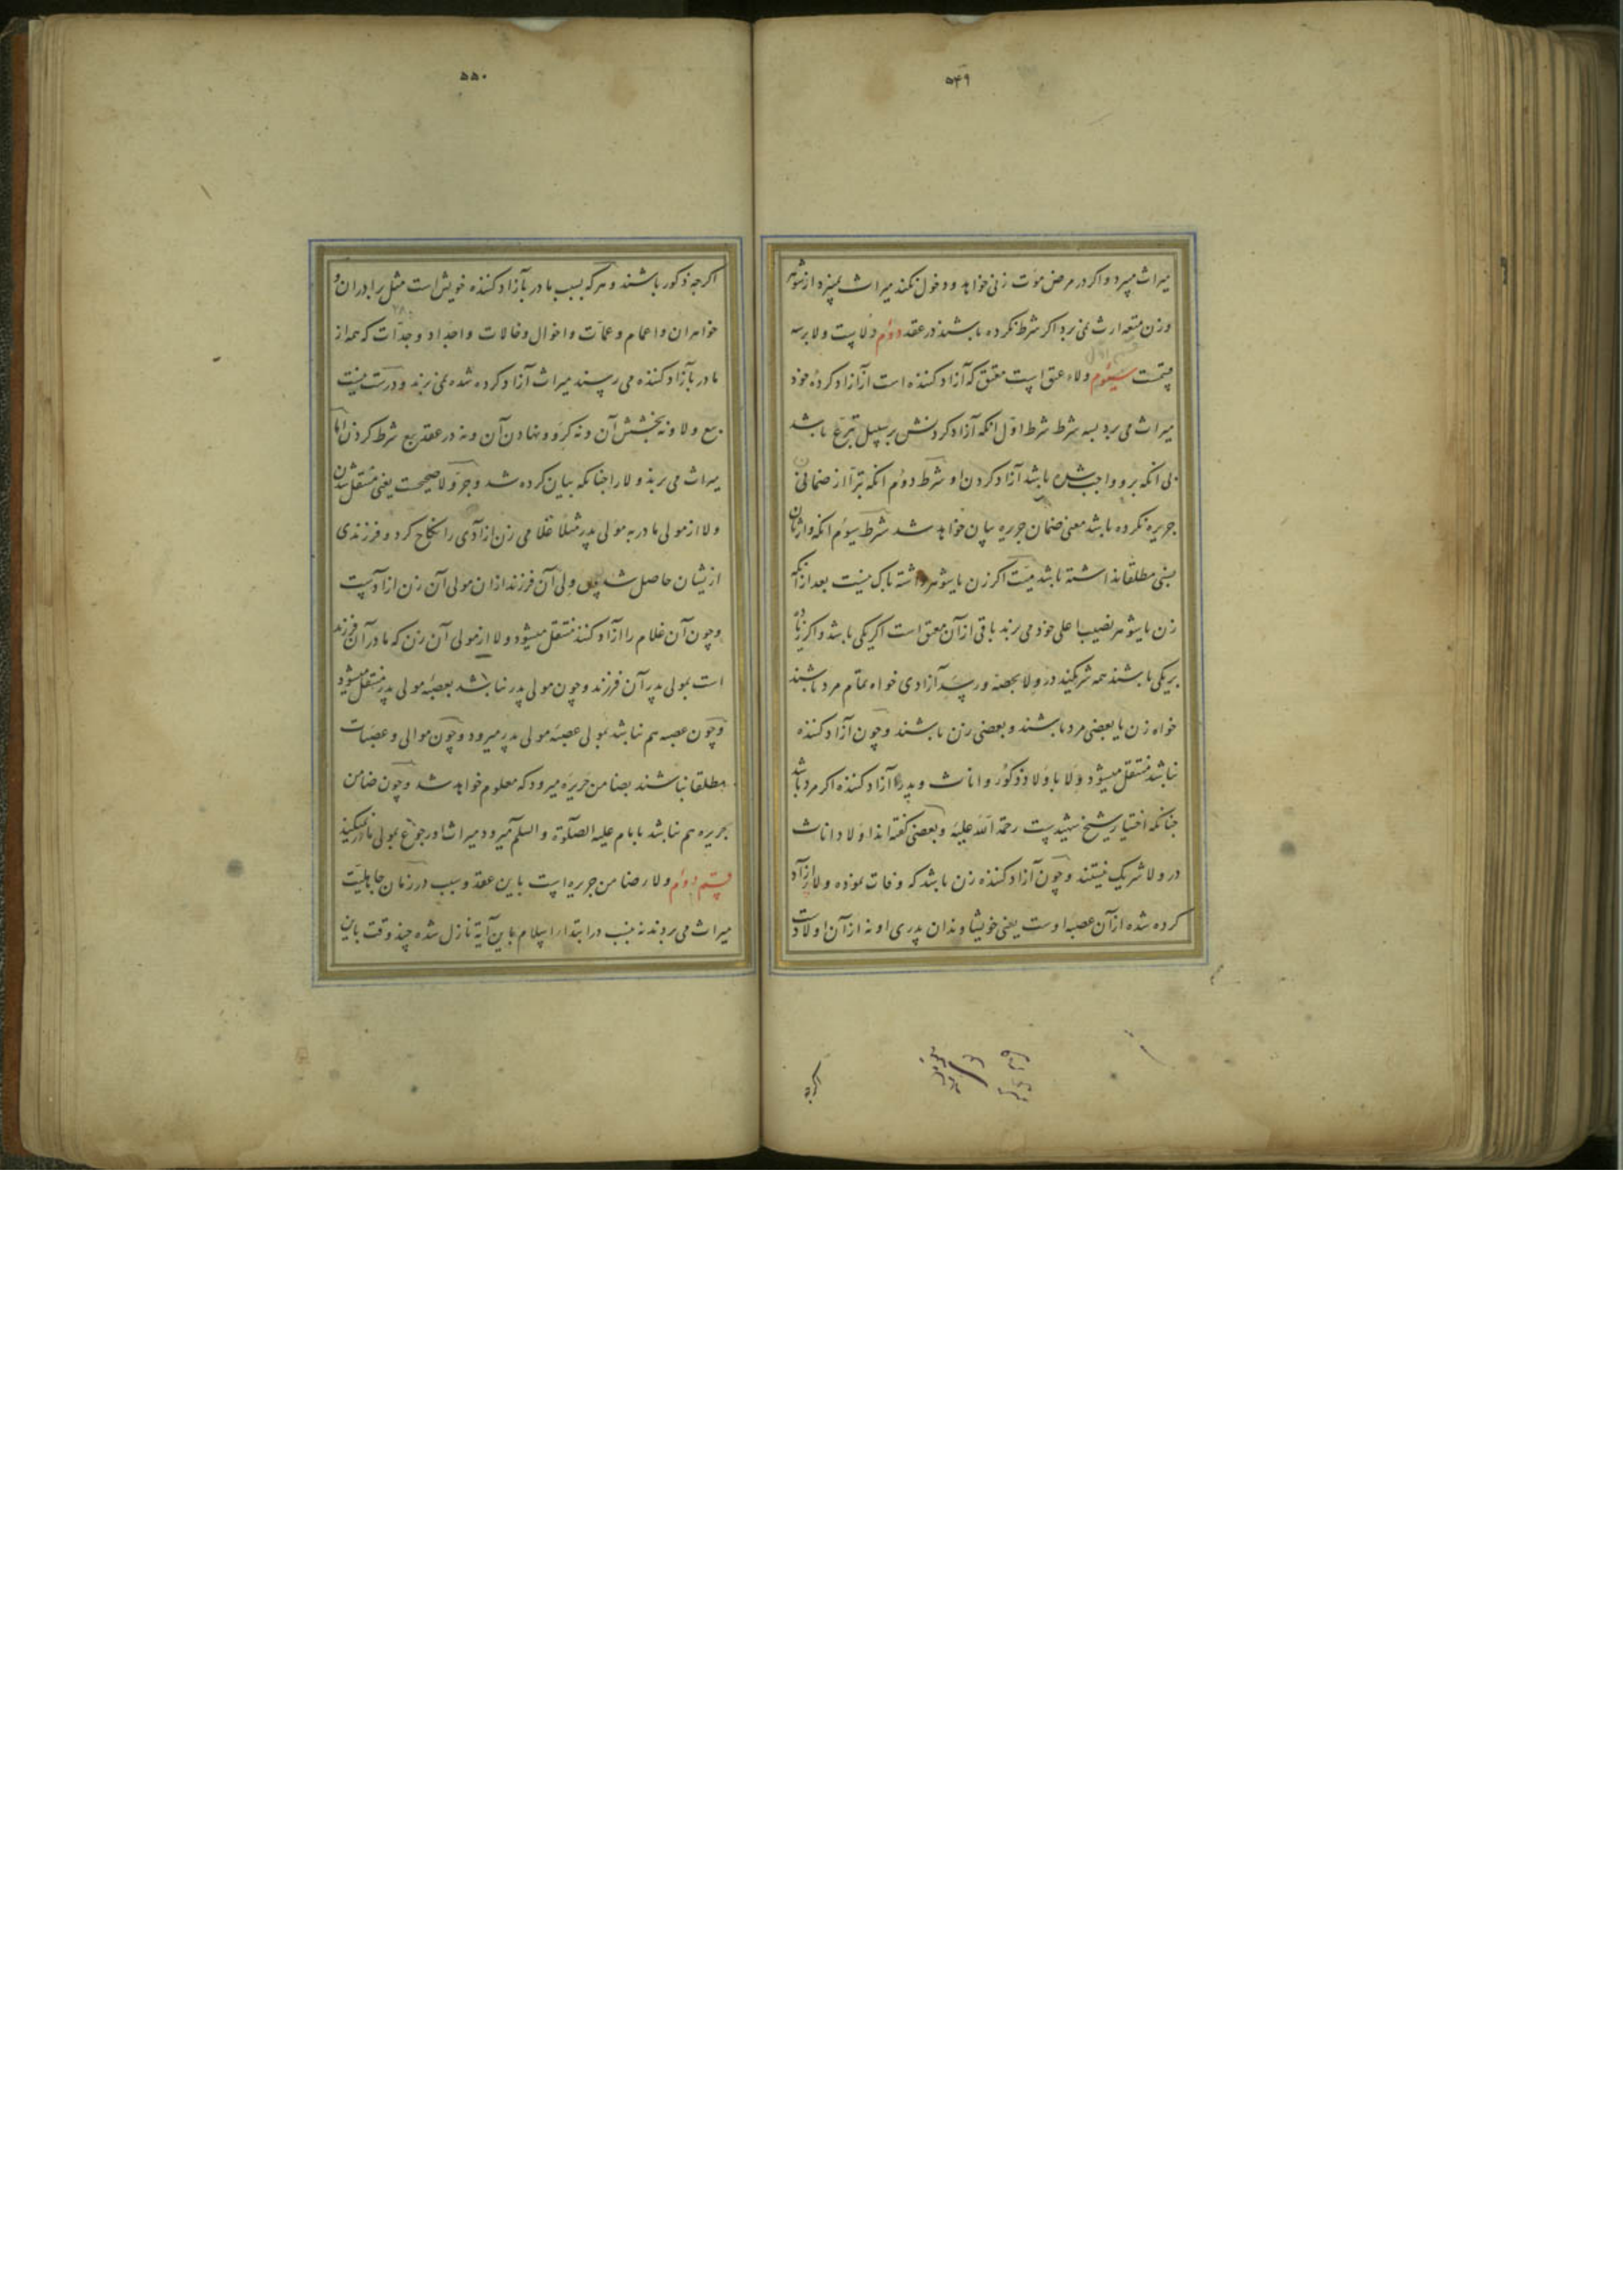 ۵۴۹
میراث میبرد و اگر در مرض موت زنی خواهد و دخول نکند میراث نمیبرد از شوهر
و زن متعه ارث نمی برد اگر شرط نکرده باشند در عقد دوم ولاست و لا بر سه
قسمت قسم اول سیّوم ولاء عتق است معتق که آزاد کننده است از آزاد کردهٔ خود
میراث می برد بسه شرط شرط اول انکه آزاد کردنش بر سبیل تبرّع باشد
بی انکه برو واجب شده باشد آزاد کردن او شرط دوم انکه تبرّا از ضمان
جریره نکرده باشد معنی ضمان جریره بیان خواهد شد شرط سیوم انکه وارثان
نسبی مطلقا نداشته باشد میّت اگر زن یا شوهر داشته باک نیست بعد از آنکه
زن یا شوهر نصیب اعلی خود می برند باقی از آن معتق است اگر یکی باشد و اگر زیاده
بر یکی باشند همه شریکند در ولا بحصه و رسد آزادی خواه تمام مرد باشند
خواه زن یا بعضی مرد باشند و بعضی زن باشند و چون آزاد کننده
نباشد منتقل میشود ولا باولاد ذکور و اناث و پدر آزاد کننده اگر مرد باشد
چنانکه اختیار شیخ شهیدست رحمة الله علیه و بعضی گفته اند اولاد اناث
در ولا شریک نیستند و چون آزاد کننده زن باشد که وفات نموده ولا از آزاد
کرده شده از آن عصبه اوست یعنی خویشاوندان پدری او نه از آن اولادت
اگرچه
۵۵۰
اگرچه ذکور باشند و هرکه بسبب مادر بآزاد کننده خویش است مثل برادران و
خواهران و اعمام و عمّات و اخوال و خالات و اجداد و جدّات که همه از
مادر بآزاد کننده می رسند میراث آزاد کرده شده نمی برند و درست نیست
بیع ولا و نه بخشش آن و نه گرو و نهادن آن و نه در عقد بیع شرط کردن امّا
میراث می برند ولا را چنانکه بیان کرده شد و جرّ ولا صحیحست یعنی منتقل شدن
ولا از مولی مادر به مولی پدر مثلا غلامی زن آزادی را نکاح کرد و فرزندی
ازیشان حاصل شد پس ولی آن فرزند از ان مولی آن زن آزادست
و چون آن غلام را آزاد کنند منتقل میشود ولا از مولی آن زن که مادر آن فرزند
است بمولی پدر آن فرزند و چون مولی پدر نباشد بعصبه مولی پدر منتقل میشود
و چون عصبه هم نباشد بمولی عصبهٔ مولی پدر میرود و چون موالی و عصبات
مطلقا نباشند بضامن جریره میرود که معلوم خواهد شد و چون ضامن
جریره هم نباشد بامام علیه الصلوة و السلم میرود و میراث او رجوع بمولی مادر نمیکند
قسم دوم ولاء ضامن جریره است باین عقد و سبب در زمان جاهلیت
میراث می بردند نه بنسب در ابتدار اسلام باین آیة نازل شده چند وقت باین